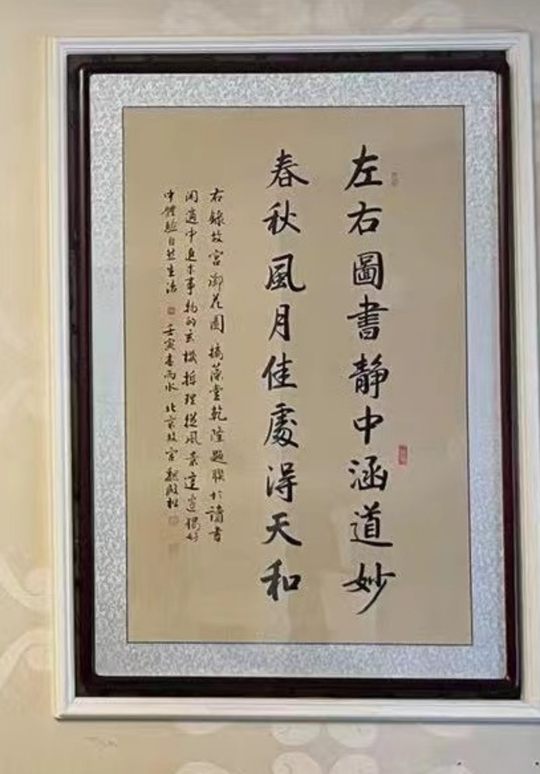 左右圖書静中涵道妙
春秋風月佳處得天和
右錄故宫御花園摛藻堂乾隆題聯於讀書
閑適中追求事物的玄機哲理從風景
中體驗自然生活 壬寅春雨水 北京故宫